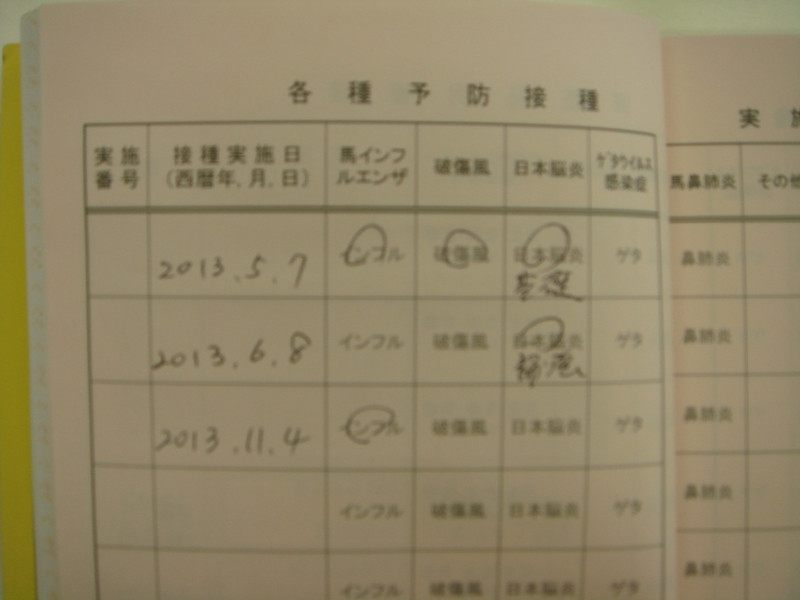 各種予防接種
実
実施番号 接種実施日(西暦年,月,日) 馬インフルエンザ 破傷風 日本脳炎 ゲタウイルス感染症 馬鼻肺炎 その他
2013.5.7 インフル 破傷風 日本脳炎 ゲタ 鼻肺炎
2013.6.8 インフル 破傷風 日本脳炎 ゲタ 鼻肺炎
2013.11.4 インフル 破傷風 日本脳炎 ゲタ 鼻肺炎
インフル 破傷風 日本脳炎 ゲタ 鼻肺炎
インフル 破傷風 日本脳炎 ゲタ 鼻肺炎